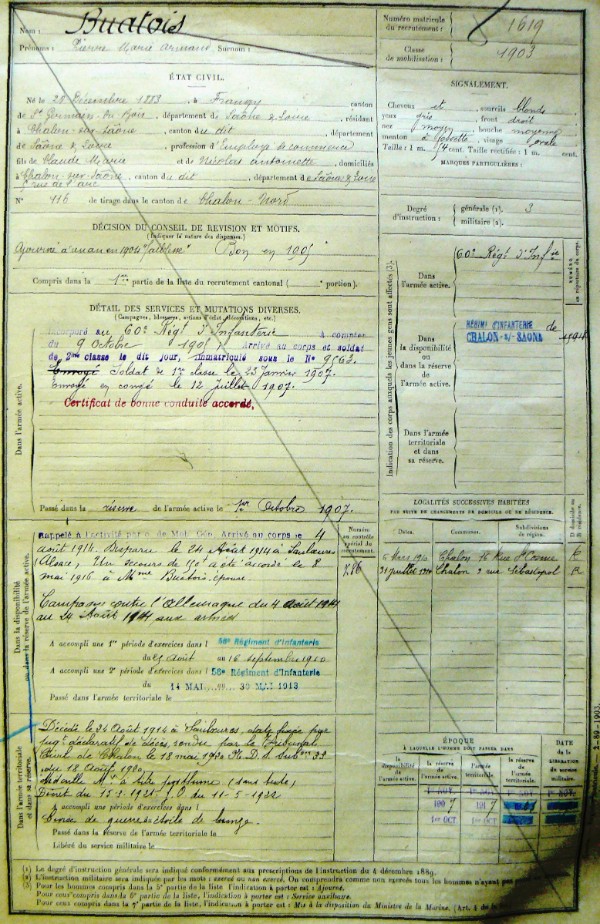 Nom : Buatois
Prénoms : Pierre Marie Armand Surnom :
Numéro matricule du recrutement : 1619
Classe de mobilisation : 1903
ÉTAT CIVIL.
Né le 28 Décembre 1883, à Frangy, canton
de St Germain du Bois, département de Saône & Loire, résidant
à Chalon-sur-Saône, canton du dit, département
de Saône & Loire, profession d'employé de commerce
fils de Claude Marie et de Nicolas Antoinette, domiciliés
à Chalon-sur-Saône, canton du dit, département de Saône & Loire
N° 116 de tirage dans le canton de Chalon-Nord
SIGNALEMENT.
Cheveux et sourcils blonds
yeux gris, front droit
nez moyen, bouche moyenne
menton à fossette, visage ovale
Taille : 1 m. cent. Taille rectifiée : 1 m. cent.
MARQUES PARTICULIÈRES :
Degré d'instruction : générale (1). 3
militaire (2).
DÉCISION DU CONSEIL DE REVISION ET MOTIFS.
(Indiquer la nature des dispenses.)
Ajourné à un an en 1904 "faiblesse" Bon en 1905
Compris dans la 1ère partie de la liste du recrutement cantonal ( portion).
DÉTAIL DES SERVICES ET MUTATIONS DIVERSES.
(Campagnes, blessures, actions d'éclat, décorations, etc.)
Dans l'armée active.
Incorporé au 60e Régt d'Infanterie à compter
du 9 Octobre 1905 Arrivé au corps et soldat
de 2me classe le dit jour, immatriculé sous le N° 9562.
Envoyé Soldat de 1re classe le 25 Janvier 1907.
Envoyé en congé le 12 juillet 1907.
Certificat de bonne conduite accordé,
Passé dans la réserve de l'armée active le 1er Octobre 1907.
Indication des corps auxquels les jeunes gens sont affectés (3).
Dans l'armée active.
60e Régt d'Infie
Dans la disponibilité ou dans la réserve de l'armée active.
RÉGIMENT D'INFANTERIE de
CHALON-s/-SAONE
Dans l'armée territoriale et dans sa réserve.
Dans la disponibilité ou dans la réserve de l'armée active.
Rappelé à l'activité par o. de Mob. Gén. Arrivé au corps le 4
août 1914. Disparu le 24 Août 1914 à Saulxures
(Alsace). Un secours de 150f a été accordé le 8
mai 1916 à Mme Buatois, épouse.
Campagne contre l'Allemagne du 4 août 1914
au 24 Août 1914 aux armées
A accompli une 1re période d'exercices dans l 56e Régiment d'Infanterie
du 25 août au 16 septembre 1910
A accompli une 2e période d'exercices dans l 56e Régiment d'Infanterie
du 14 MAI au 30 MAI 1913
Passé dans l'armée territoriale le
Numéro au contrôle spécial du recrutement.
LOCALITÉS SUCCESSIVES HABITÉES
PAR SUITE DE CHANGEMENTS DE DOMICILE OU DE RÉSIDENCE.
Dates. Communes. Subdivisions de région. D domicile ou R résidence.
Chalon 16 Rue St Cosme
31 juillet Chalon 2 rue Sébastopol R
Dans l'armée territoriale et dans sa réserve.
Décédé le 24 Août 1914 à Saulxures, date fixée par
jugt déclaratif de décès rendu par le Tribunal
Civil de Chalon le 18 mai 1920
du 18 Août 1920
Médaille Mre à titre posthume
A accompli une période d'exercices dans l
Croix de guerre étoile de bronze.
Passé dans la réserve de l'armée territoriale le
Libéré du service militaire le
ÉPOQUE
À LAQUELLE L'HOMME DOIT PASSER DANS
la disponibilité de l'armée active. la réserve de l'armée active. l'armée territoriale. la réserve de l'armée territoriale.
DATE de la LIBÉRATION du service militaire.
1er OCT 1er OCT
(1) Le degré d'instruction générale sera indiqué conformément aux prescriptions de l'instruction du 4 décembre 1889.
(2) L'instruction militaire sera indiquée par les mots : exercé ou non exercé. On comprendra comme non exercés tous les hommes n'ayant pas
(3) Pour les hommes compris dans la 5e partie de la liste l'indication à porter est : Ajourné.
Pour ceux compris dans la 6e partie de la liste, l'indication à porter est : Service auxiliaire.
Pour ceux compris dans la 7e partie de la liste, l'indication à porter est : Mis à la disposition du Ministre de la Marine. (Art. 4 de la